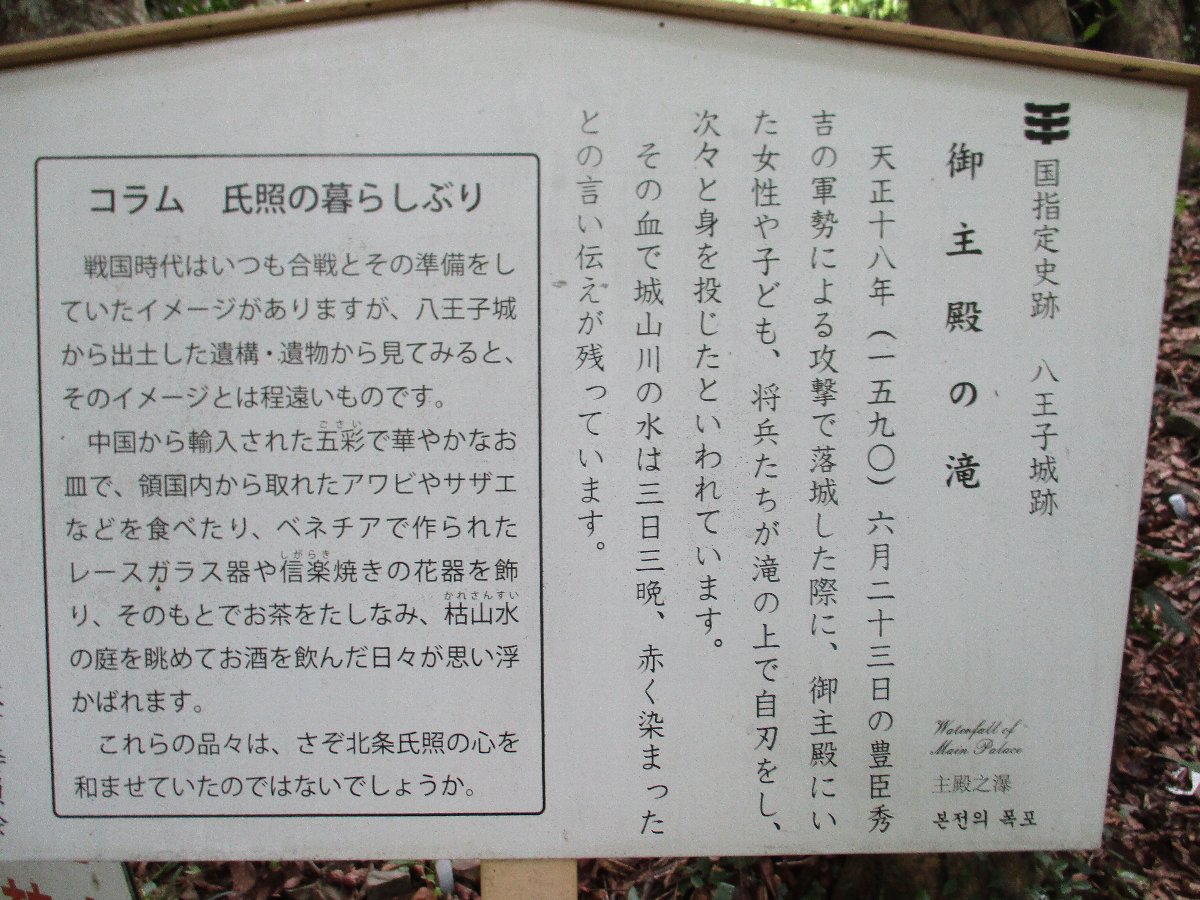 国指定史跡　八王子城跡
御主殿の滝
天正十八年（一五九〇）六月二十三日の豊臣秀
吉の軍勢による攻撃で落城した際に、御主殿にい
た女性や子ども、将兵たちが滝の上で自刃をし、
次々と身を投じたといわれています。
その血で城山川の水は三日三晩、赤く染まった
との言い伝えが残っています。
Waterfall of
Main Palace
主殿之瀑
본전의 폭포
コラム　氏照の暮らしぶり
戦国時代はいつも合戦とその準備をし
ていたイメージがありますが、八王子城
から出土した遺構・遺物から見てみると、
そのイメージとは程遠いものです。
ごさい
中国から輸入された五彩で華やかなお
皿で、領国内から取れたアワビやサザエ
などを食べたり、ベネチアで作られた
しがらき
レースガラス器や信楽焼きの花器を飾
かれさんすい
り、そのもとでお茶をたしなみ、枯山水
の庭を眺めてお酒を飲んだ日々が思い浮
かばれます。
これらの品々は、さぞ北条氏照の心を
和ませていたのではないでしょうか。